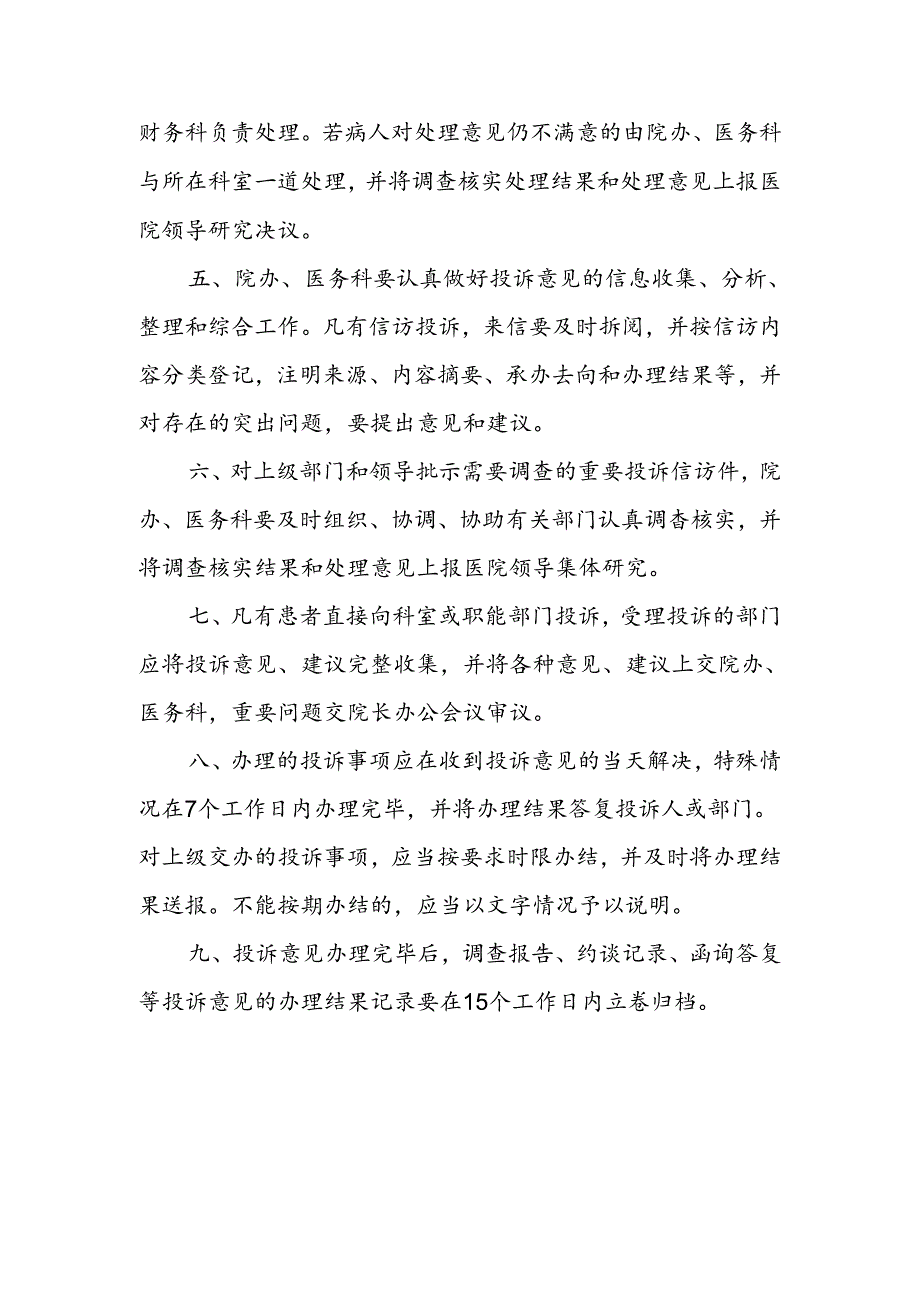 财务科负责处理。若病人对处理意见仍不满意的由院办、医务科
与所在科室一道处理，并将调查核实处理结果和处理意见上报医
院领导研究决议。
五、院办、医务科要认真做好投诉意见的信息收集、分析、
整理和综合工作。凡有信访投诉，来信要及时拆阅，并按信访内
容分类登记，注明来源、内容摘要、承办去向和办理结果等，并
对存在的突出问题，要提出意见和建议。
六、对上级部门和领导批示需要调查的重要投诉信访件，院
办、医务科要及时组织、协调、协助有关部门认真调沓核实，并
将调查核实结果和处理意见上报医院领导集体研究。
七、凡有患者直接向科室或职能部门投诉，受理投诉的部门
应将投诉意见、建议完整收集，并将各种意见、建议上交院办、
医务科，重要问题交院长办公会议审议。
八、办理的投诉事项应在收到投诉意见的当天解决，特殊情
况在7个工作日内办理完毕，并将办理结果答复投诉人或部门。
对上级交办的投诉事项，应当按要求时限办结，并及时将办理结
果送报。不能按期办结的，应当以文字情况予以说明。
九、投诉意见办理完毕后，调查报告、约谈记录、函询答复
等投诉意见的办理结果记录要在15个工作日内立卷归档。